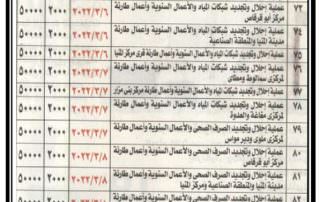 ٧٣ عملية إحلال وتجديد شبكات المياه والأعمال السنوية وأعمال طارئة ٢٠٢٢/٣/٦ ٢٠٠٠ ٥٠٠٠٠
مركز أبو قرقاص
٧٤ عملية إحلال وتجديد شبكات المياه والأعمال السنوية وأعمال طارئة ٢٠٢٢/٣/٦ ٢٠٠٠ ٥٠٠٠٠
مدينة المنيا والمنطقة الصناعية
٧٥ عملية إحلال وتجديد شبكات المياه والأعمال السنوية وأعمال طارئة قرى مركز المنيا ٢٠٢٢/٣/٦ ٢٠٠٠ ٥٠٠٠٠
٧٦ عملية إحلال وتجديد شبكات المياه والأعمال السنوية وأعمال طارئة ٢٠٢٢/٣/٧ ٢٠٠٠ ٥٠٠٠٠
لمركزى سمالوط ومطاى
٧٧ عملية إحلال وتجديد شبكات المياه والأعمال السنوية وأعمال طارئة مركز بنى مزار ٢٠٢٢/٣/٧ ٢٠٠٠ ٥٠٠٠٠
٧٨ عملية إحلال وتجديد شبكات المياه والأعمال السنوية وأعمال طارئة ٢٠٢٢/٣/٧ ٢٠٠٠ ٥٠٠٠٠
لمركزى مغاغة والعدوة
٧٩ عملية إحلال وتجديد الصرف الصحى والأعمال السنوية وأعمال طارئة ٢٠٢٢/٣/٧ ٢٠٠٠ ٥٠٠٠٠
لمركزى ملوى ودير مواس
٨٠ عملية إحلال وتجديد الصرف الصحى والأعمال السنوية وأعمال طارئة ٢٠٢٢/٣/٨ ٢٠٠٠ ٥٠٠٠٠
مركز أبو قرقاص
٨١ عملية إحلال وتجديد الصرف الصحى والأعمال السنوية وأعمال طارئة ٢٠٢٢/٣/٨ ٢٠٠٠ ٥٠٠٠٠
مدينة المنيا والمنطقة الصناعية ومركز المنيا
عملية إحلال وتجديد الصرف الصحى والأعمال السنوية وأعمال طارئة